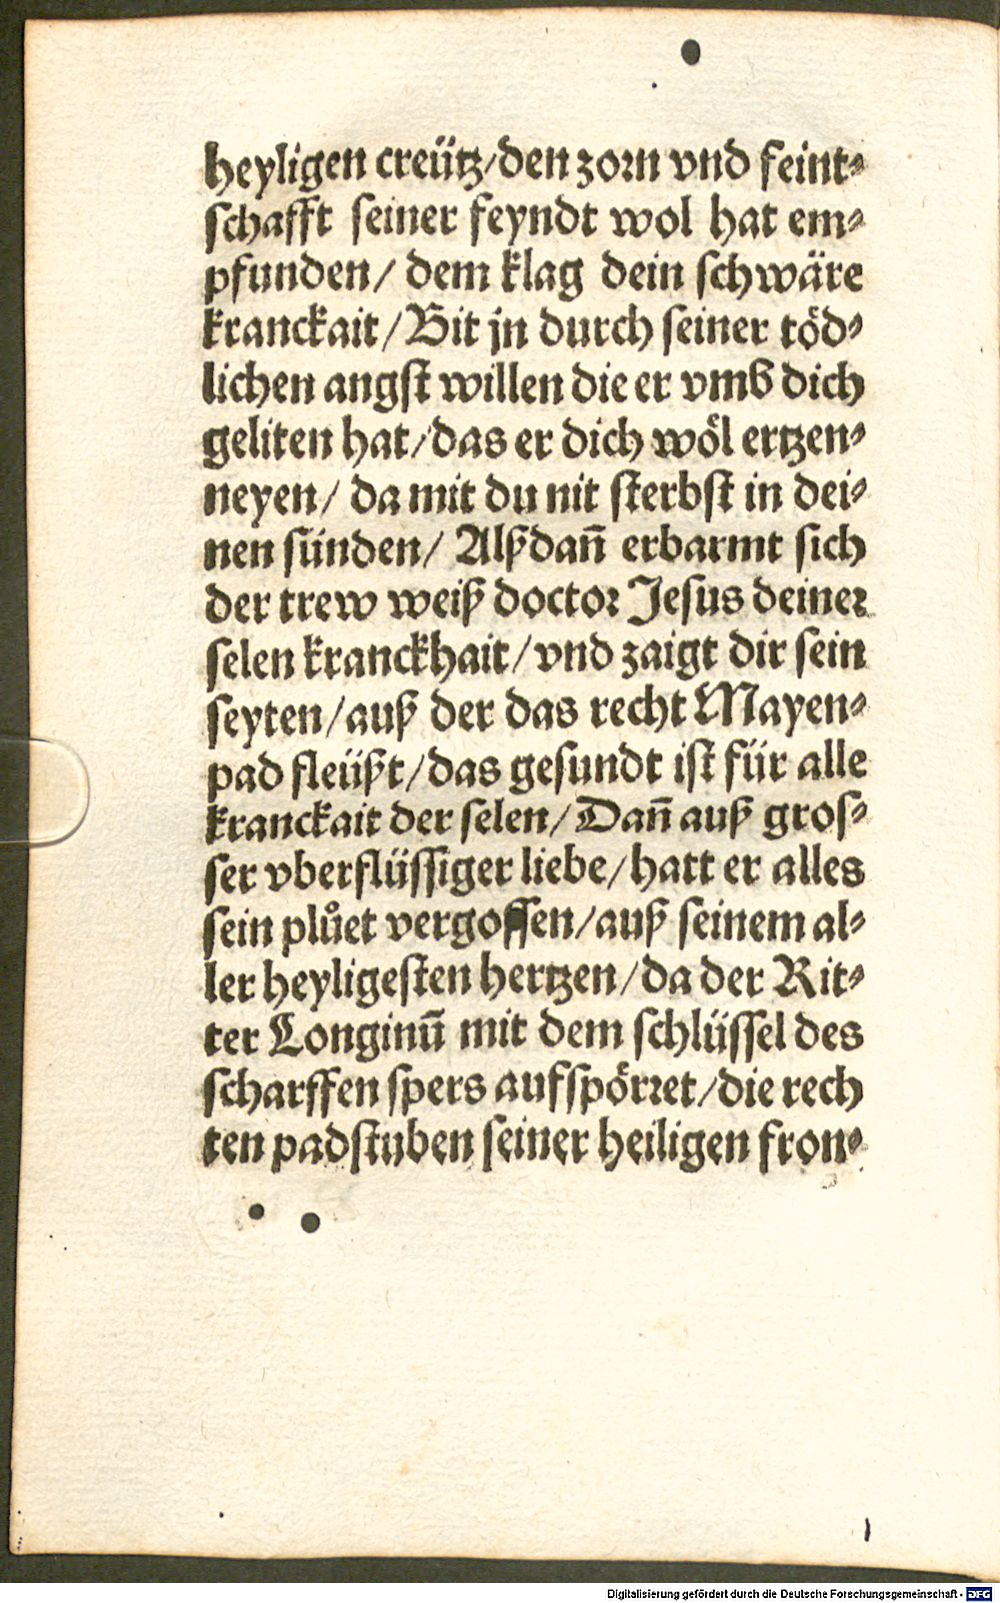 heyligen creütz/den zorn vnd feint⸗
schafft seiner feyndt wol hat em⸗
pfunden/ dem klag dein schwäre
kranckait/Bit jn durch seiner töd⸗
lichen angst willen die er vmb dich
geliten hat/das er dich wöl ertzen⸗
neyen/ da mit du nit sterbst in dei⸗
nen sünden/ Alßdañ erbarmt sich
der trew weiß doctor Jesus deiner
selen kranckhait/vnd zaigt dir sein
seyten/auß der das recht Mayen⸗
pad fleüßt/das gesundt ist für alle
kranckait der selen/Dañ auß gros⸗
ser vberflüssiger liebe/hatt er alles
sein plůet vergossen/auß seinem al⸗
ler heyligesten hertzen/da der Rit⸗
ter Longinū mit dem schlüssel des
scharffen spers aufspörret/die rech
ten padstuben seiner heiligen fron⸗
Digitalisierung gefördert durch die Deutsche Forschungsgemeinschaft - DFG